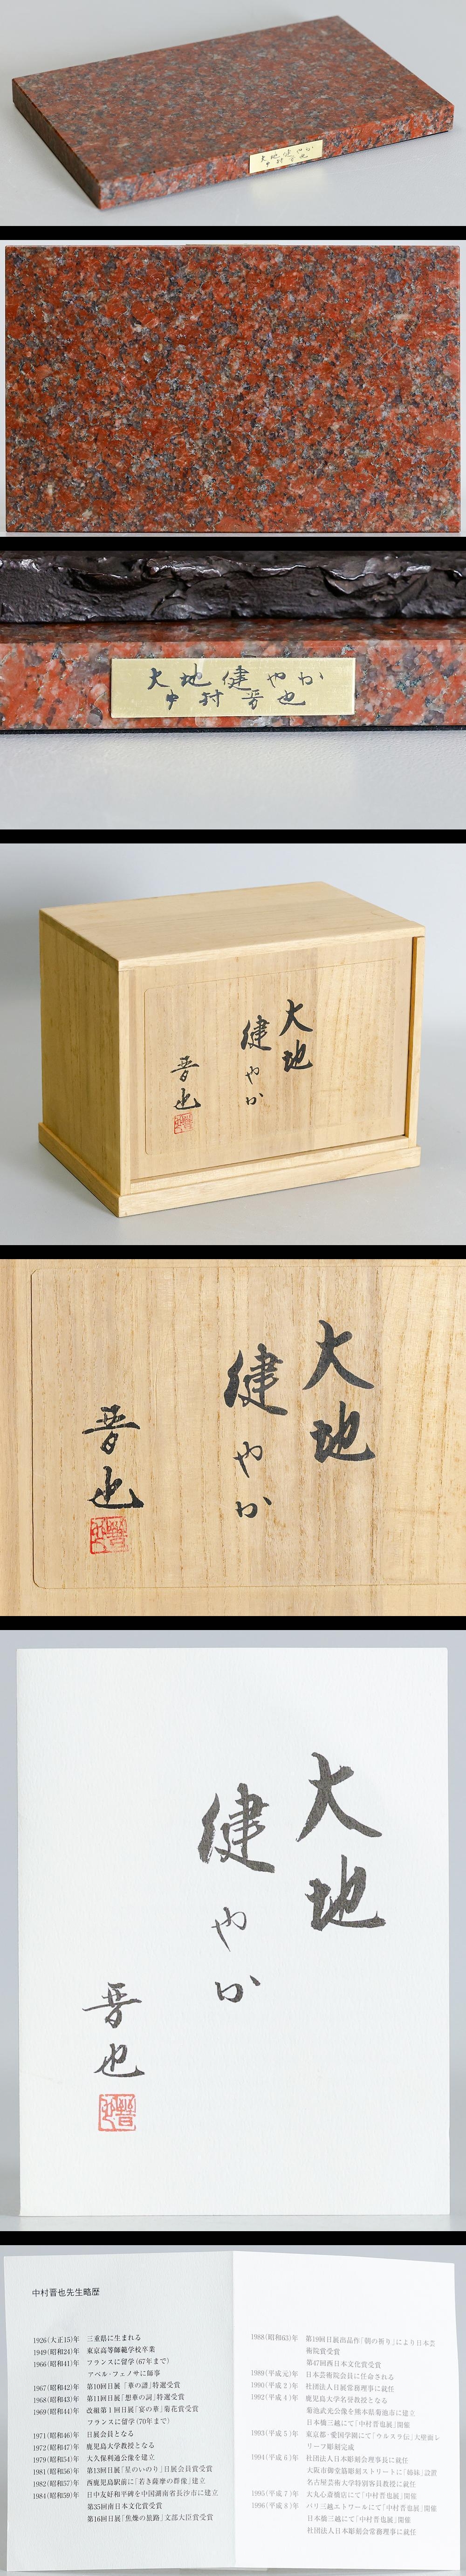 大地健やか
中村晋也
大地健やか
中村晋也
大地
健やか
晋也
大地
健やか
晋也
大地
健やか
晋也
中村晋也先生略歴
1926(大正15)年 三重県に生まれる
1949(昭和24)年 東京高等師範学校卒業
1966(昭和41)年 フランスに留学(67年まで)
アペル・フェノサに師事
1967(昭和42)年 第10回日展「華の譜」特選受賞
1968(昭和43)年 第11回日展「想華の詞」特選受賞
1969(昭和44)年 改組第1回日展「宴の華」菊花賞受賞
フランスに留学(70年まで)
1971(昭和46)年 日展会員となる
1972(昭和47)年 鹿児島大学教授となる
1979(昭和54)年 大久保利通公像を建立
1981(昭和56)年 第13回日展「星のいのり」日展会員賞受賞
1982(昭和57)年 西鹿児島駅前に「若き薩摩の群像」建立
1984(昭和59)年 日中友好和平碑を中国湖南省長沙市に建立
第35回南日本文化賞受賞
第16回日展「焦燥の旅路」文部大臣賞受賞
1988(昭和63)年 第19回日展出品作「朝の祈り」により日本芸
術院賞受賞
第47回西日本文化賞受賞
1989(平成元)年 日本芸術院会員に任命される
1990(平成2)年 社団法人日展常務理事に就任
1992(平成4)年 鹿児島大学名誉教授となる
菊池武光公像を熊本県菊池市に建立
日本橋三越にて「中村晋也展」開催
1993(平成5)年 東京都・愛国学園にて「ウルスラ伝」大壁面レ
リーフ彫刻完成
1994(平成6)年 社団法人日本彫刻会理事長に就任
大阪市御堂筋彫刻ストリートに「姉妹」設置
名古屋芸術大学特別客員教授に就任
1995(平成7)年 大丸心斎橋店にて「中村晋也展」開催
1996(平成8)年 パリ三越エトワールにて「中村晋也展」開催
日本橋三越にて「中村晋也展」開催
社団法人日本彫刻会常務理事に就任